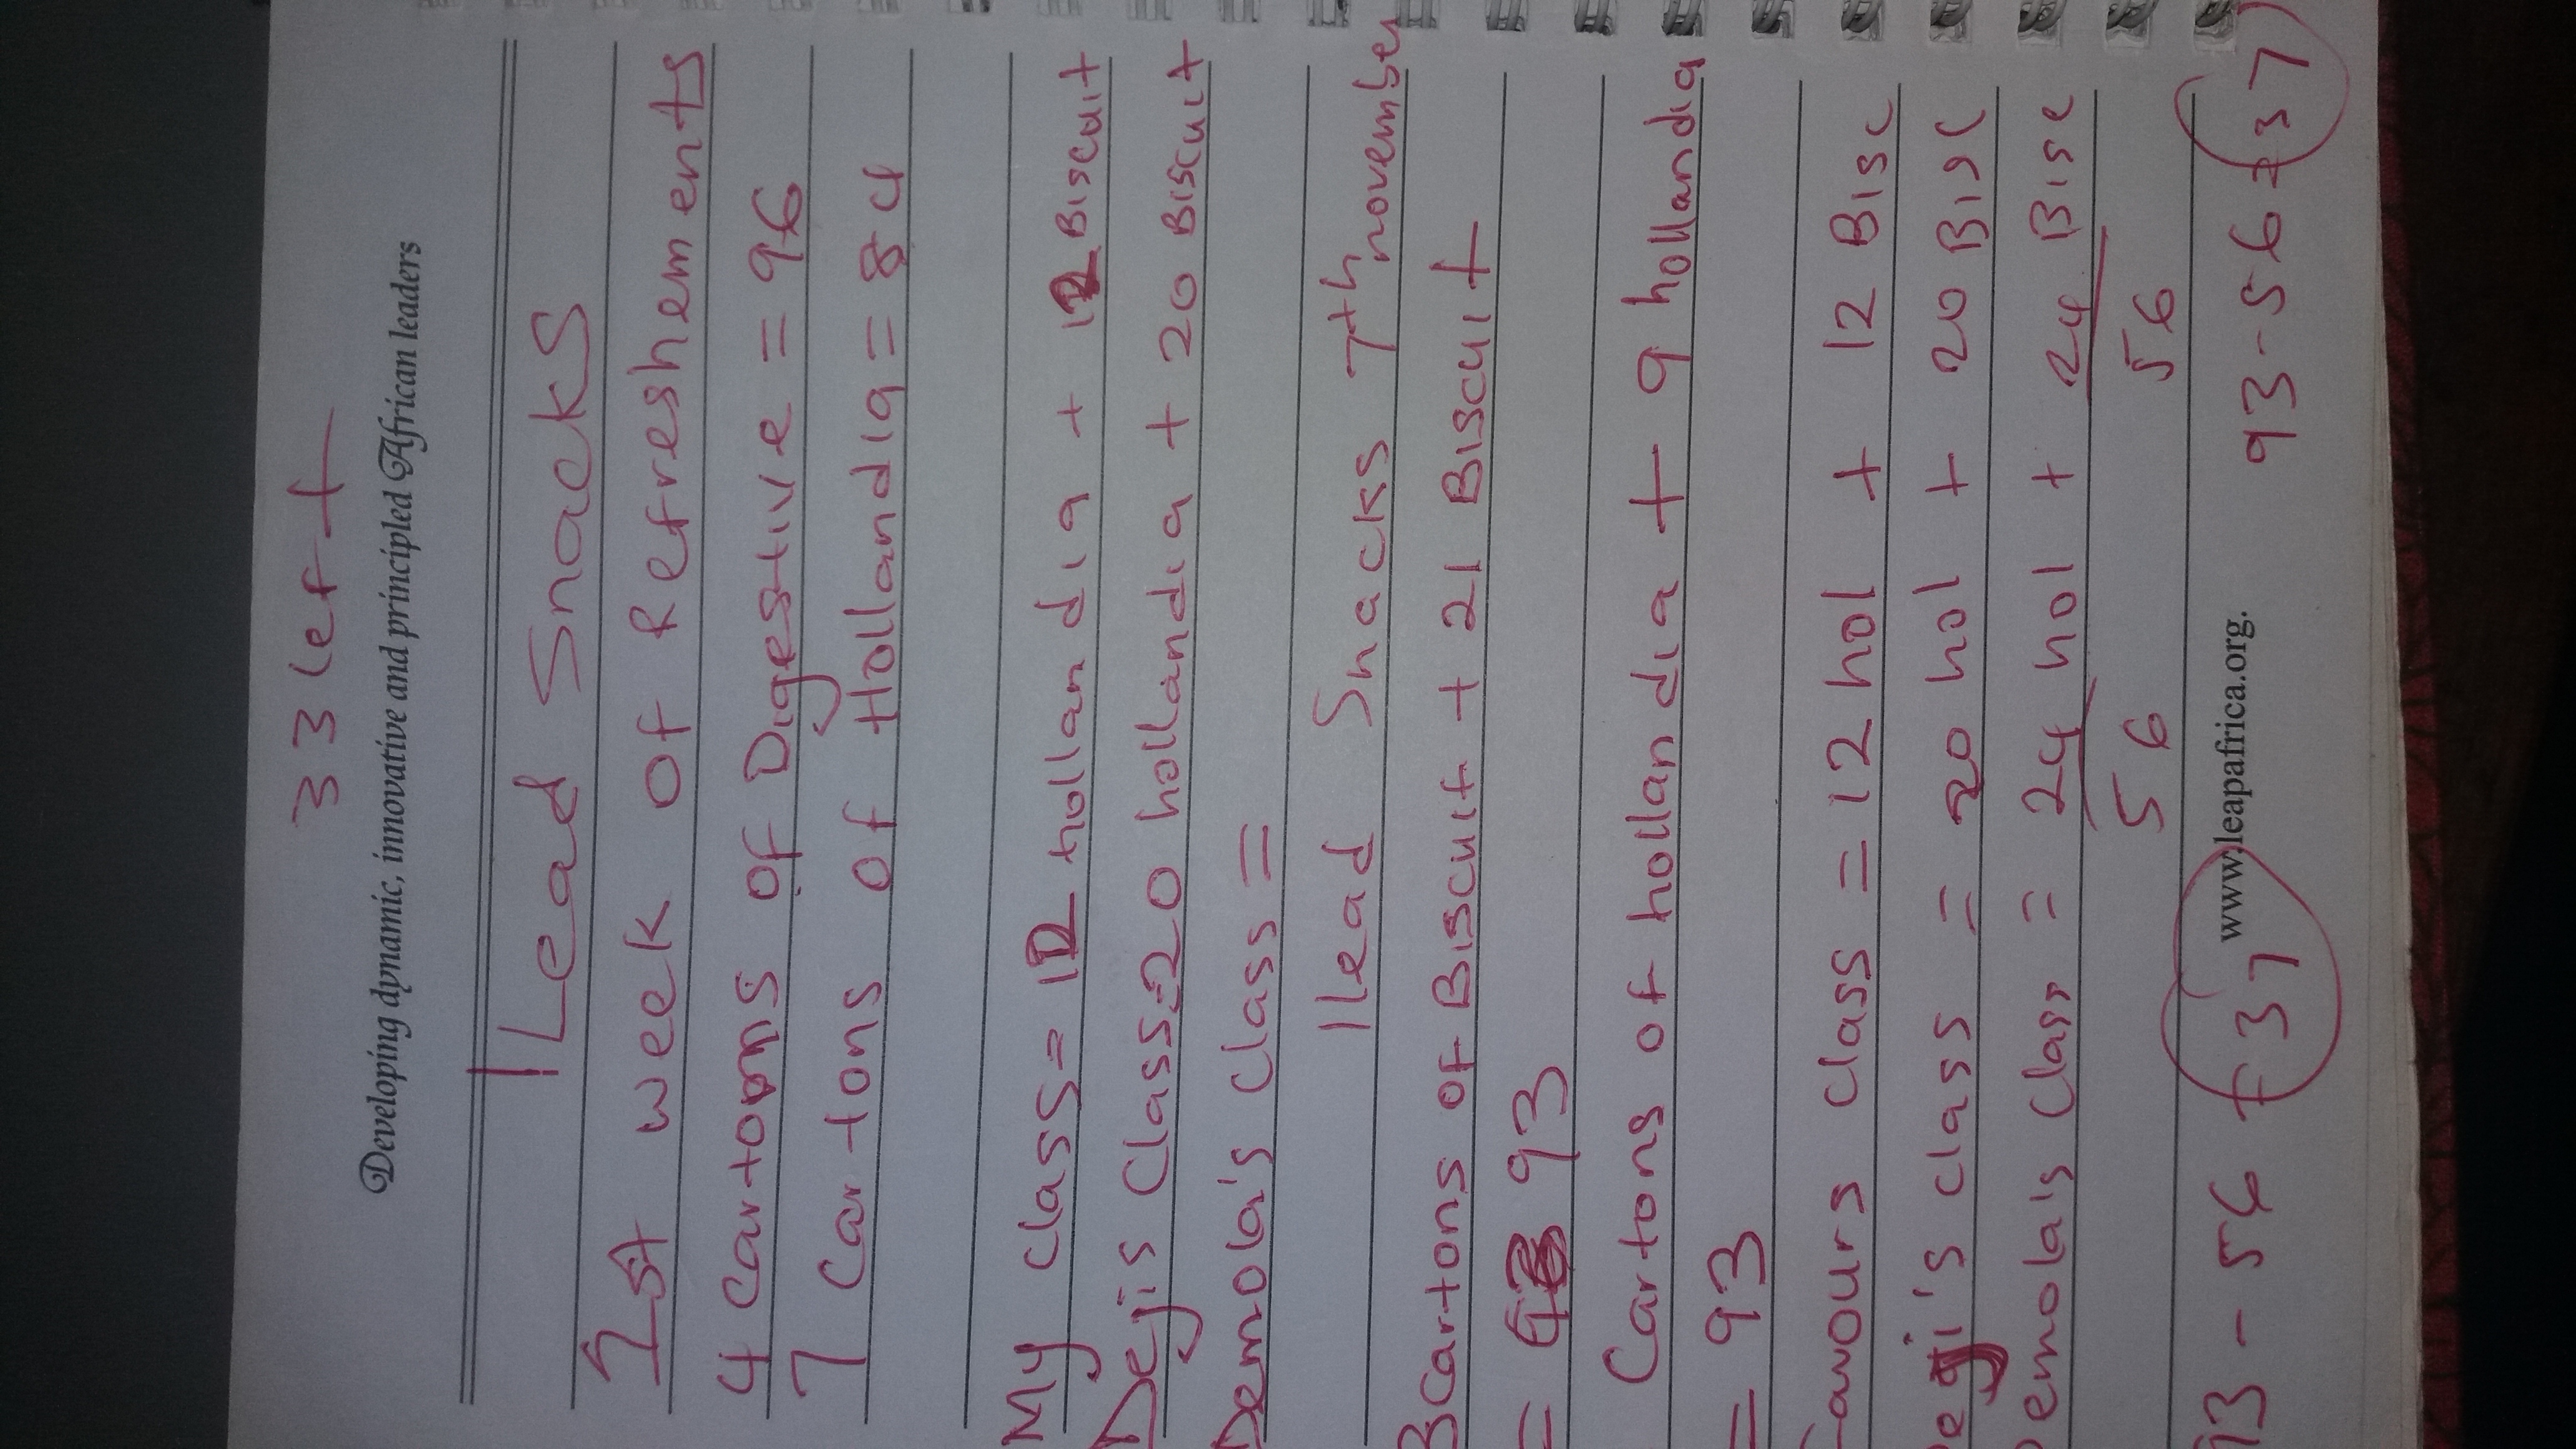 33 left
Developing dynamic, innovative and principled African leaders
I Lead Snacks
1st week of Refreshements
4 cartoons of Digestive = 96
7 Cartons of Hollandia = 84
My class = 12 hollandia + 12 Biscuit
Dejis Class = 20 hollandia + 20 Biscuit
Demola's class =
I lead Snacks 7th november
3 Cartons of Biscuit + 21 Biscuit
= 93
Cartons of hollandia + 9 hollandia
= 93
Favours class = 12 hol + 12 Bisc
Deji's class = 20 hol + 20 Bisc
Demola's class = 24 hol + 24 Bisc
56 56
93 - 56 = 37 www.leapafrica.org. 93 - 56 = 37